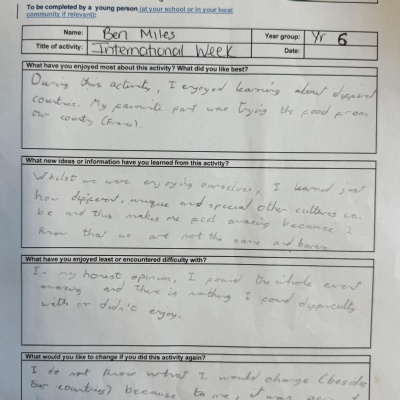 To be completed by a young person (at your school or in your local
community if relevant):
Name: Ben Miles Year group: Yr 6
Title of activity: International Week Date:
What have you enjoyed most about this activity? What did you like best?
During this activity, I enjoyed learning about different
countries. My favourite part was trying the food from
our country (France)
What new ideas or information have you learned from this activity?
Whilst we were enjoying ourselves, I learned just
how different, unique and special other cultures can
be and this makes me feel amazing because I
know that we are not the same and boren
What have you enjoyed least or encountered difficulty with?
In my honest opinion, I found the whole event
amazing and there is nothing I found difficulty
with or didn't enjoy.
What would you like to change if you did this activity again?
I do not know what I would change (besides
our countries) because to me, it was